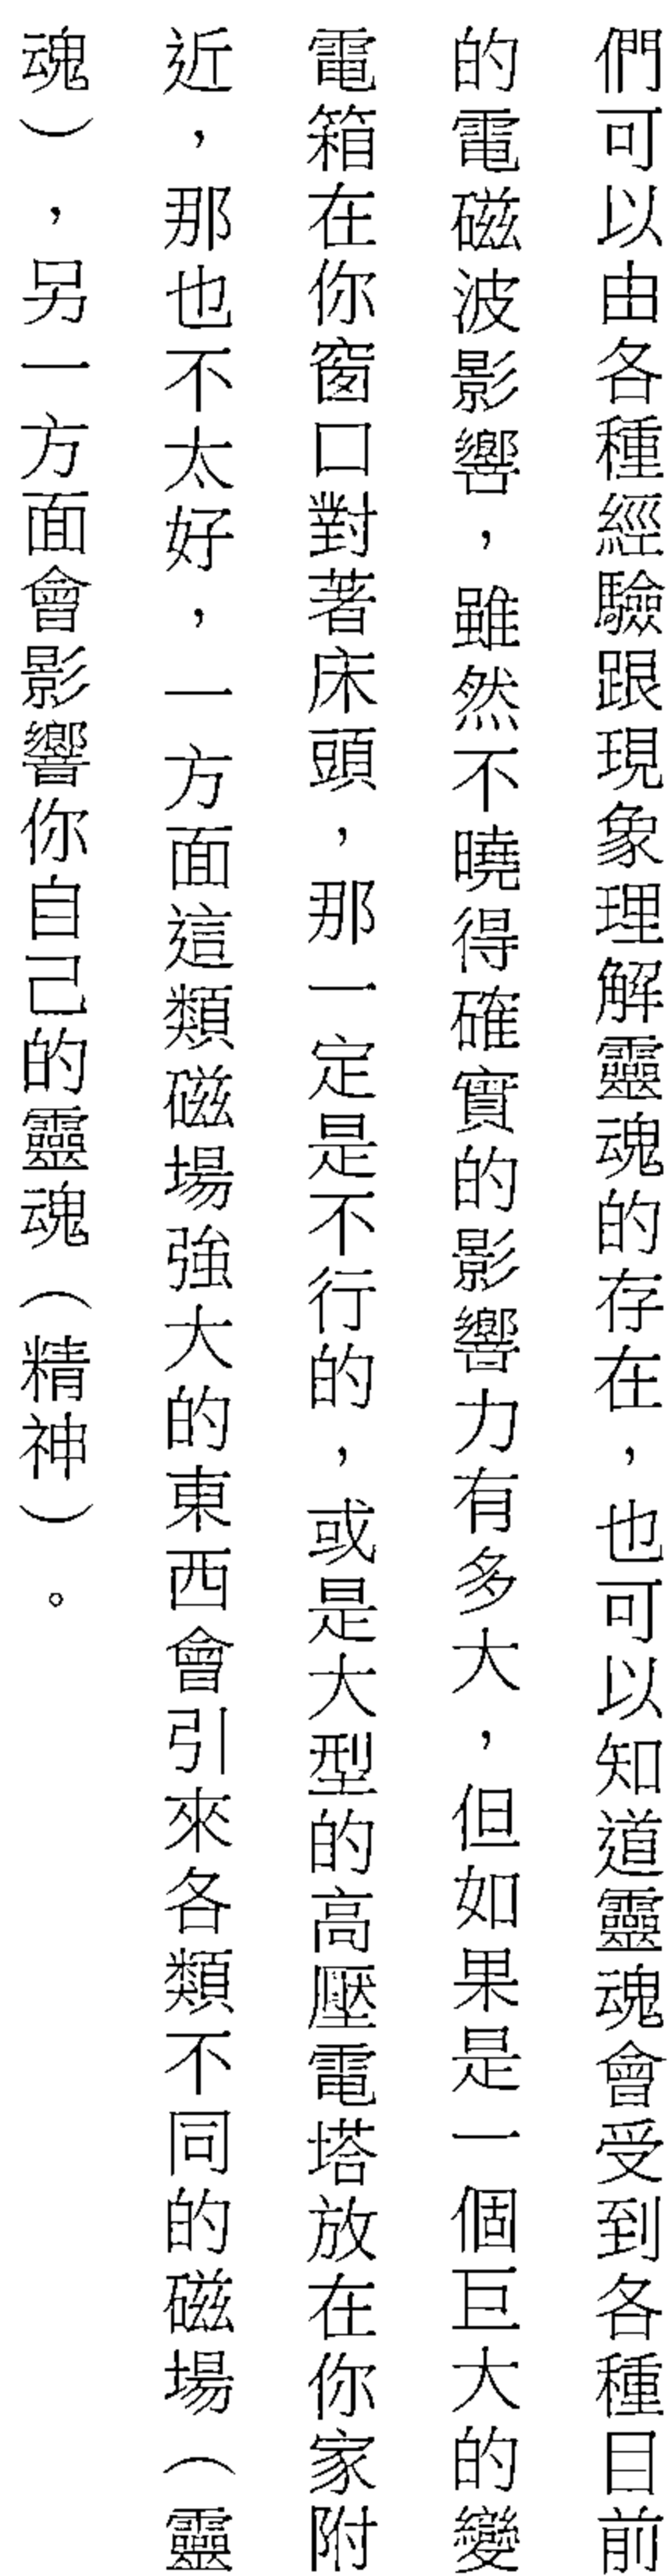 們可以由各種經驗跟現象理解靈魂的存在，也可以知道靈魂會受到各種目前
的電磁波影響，雖然不曉得確實的影響力有多大，但如果是一個巨大的變
電箱在你窗口對著床頭，那一定是不行的，或是大型的高壓電塔放在你家附
近，那也不太好，一方面這類磁場強大的東西會引來各類不同的磁場（靈
魂），另一方面會影響你自己的靈魂（精神）。